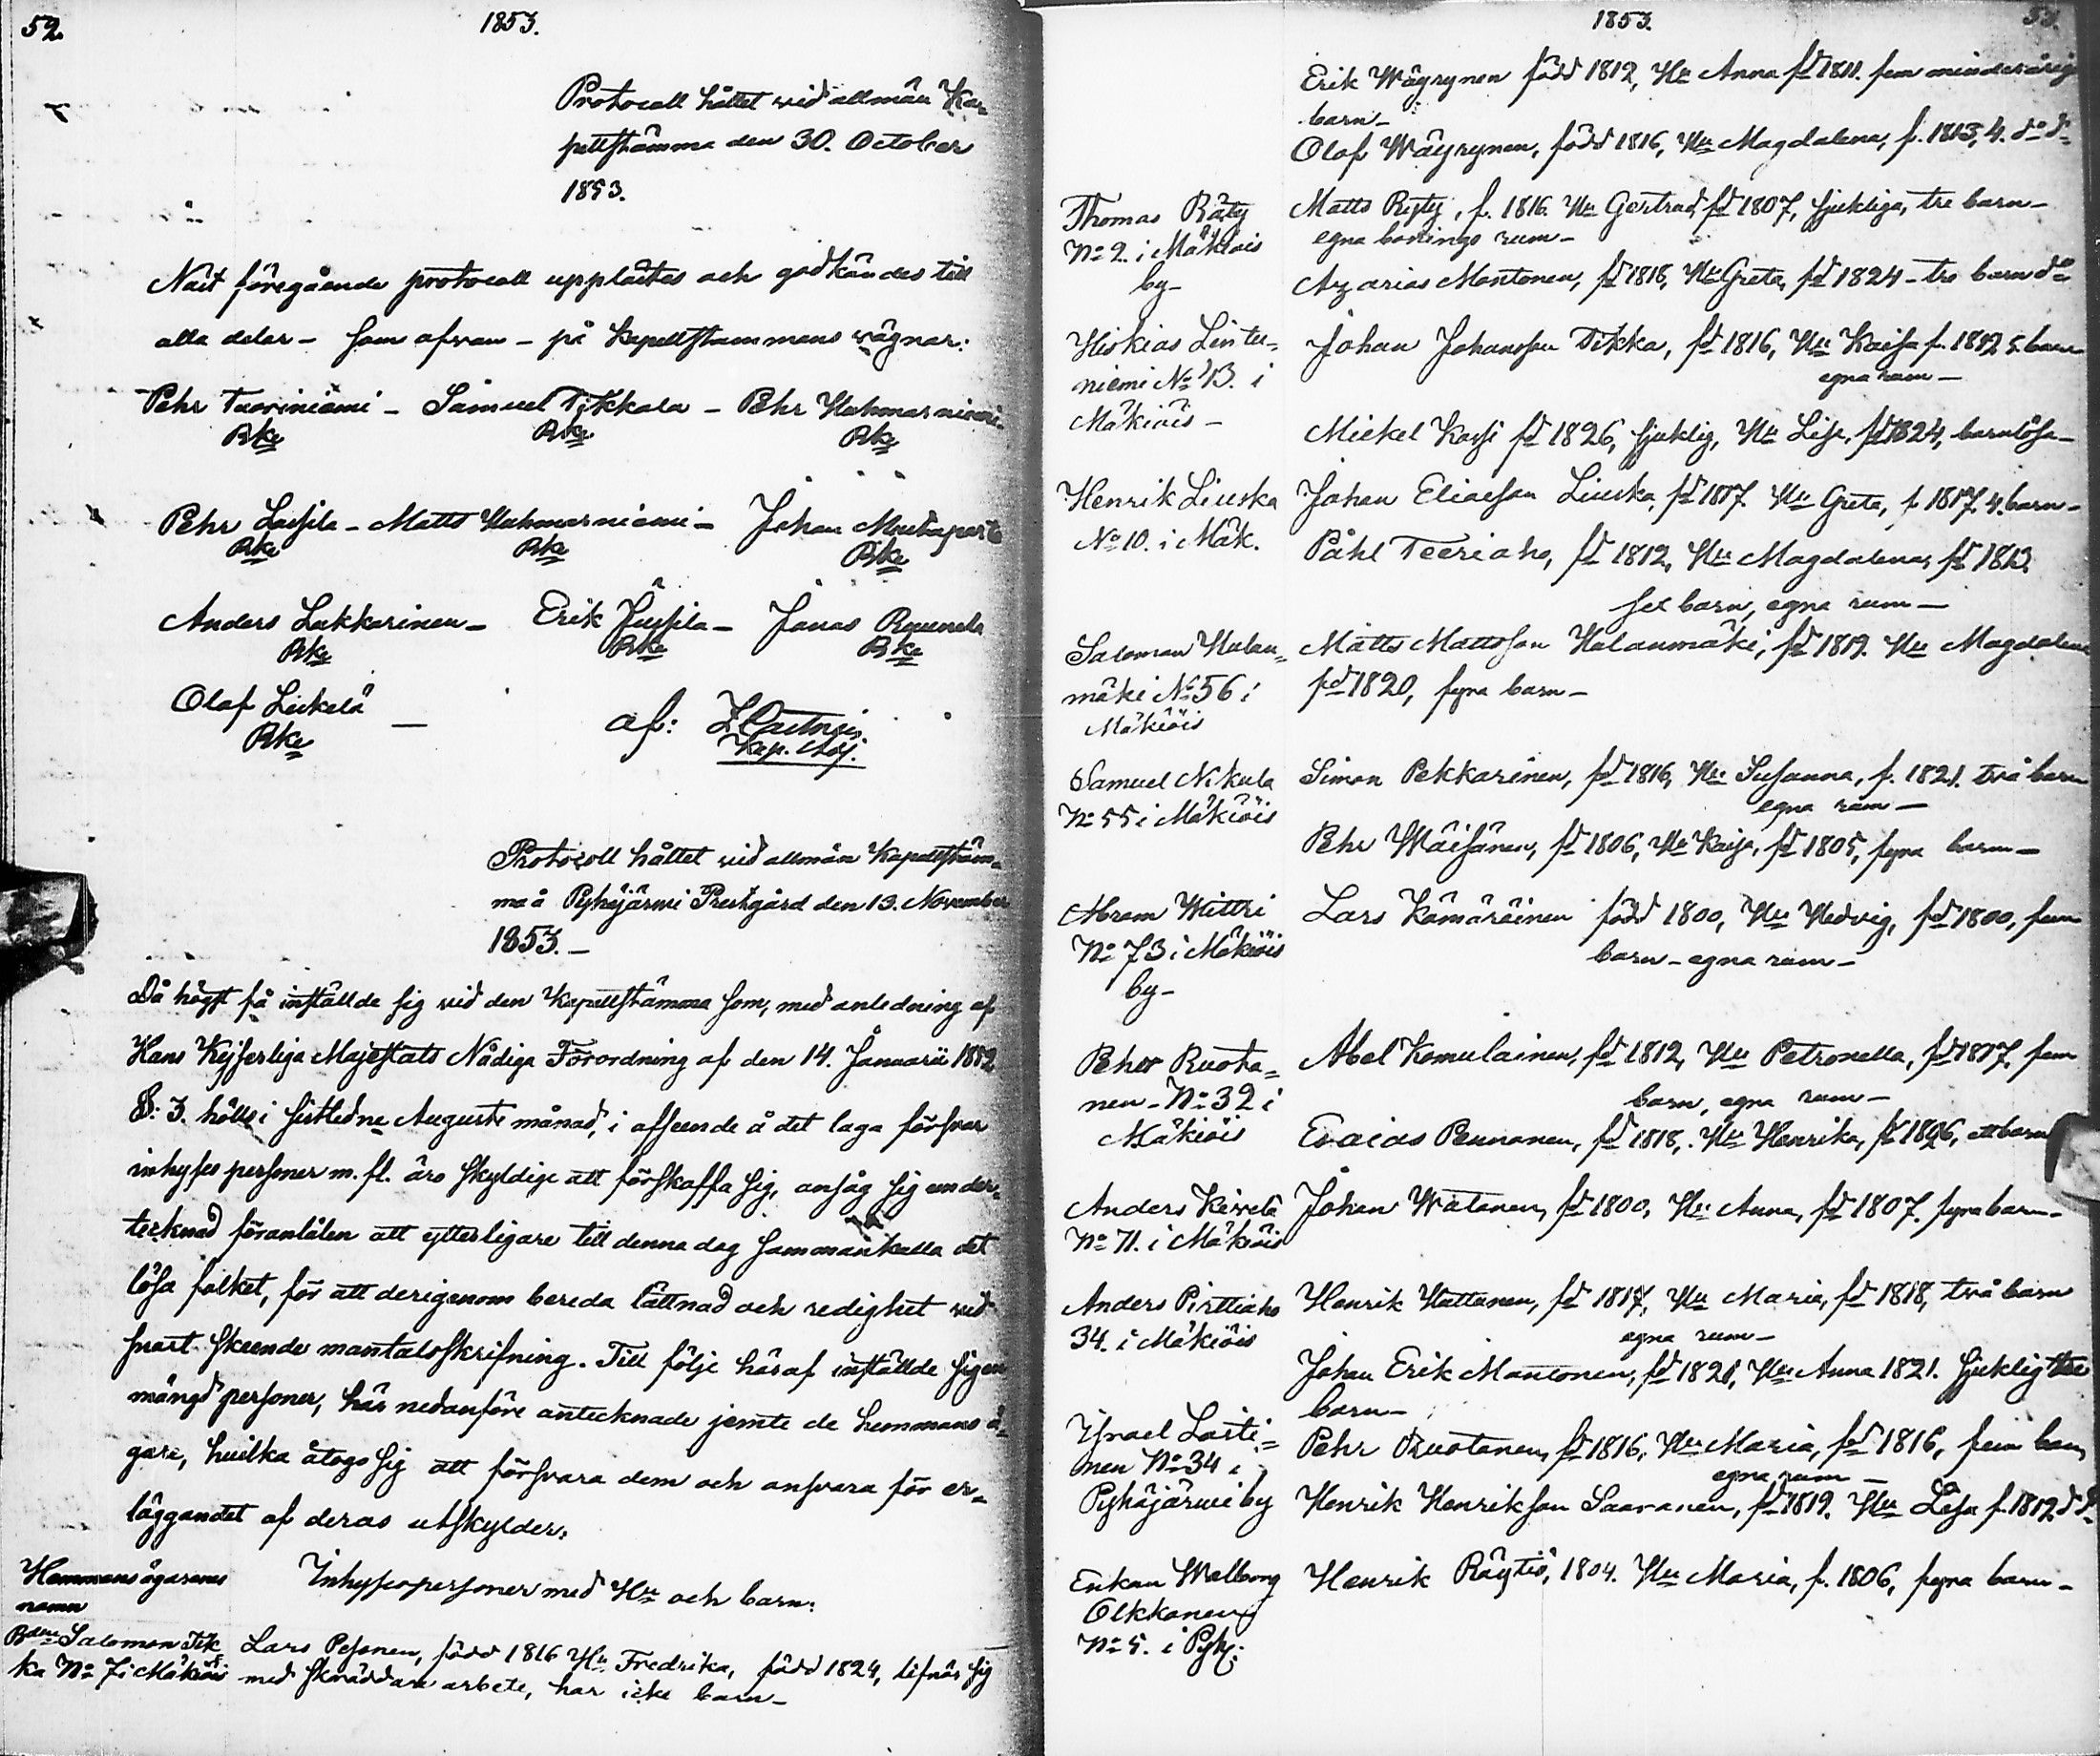 52.
1853.
Protocoll hållet vid allmän Ka-
pellstämma den 30. October
1853.
Näst föregående protocoll upplästes och godkändes till
alla delar – som ofvan – på Kapellstämmans vägnar:
Pehr Tuoriniemi – Samuel Tikkala – Pehr Uuhmarniemi
Bke Bke Bke
Pehr Lassila – Matts Uuhmarniemi – Johan
Bke Bke Bke
Anders Lukkarinen – Erik Jussila – Jonas
Bke Bke Bke
Olof Liekelä –
Bke
af:
Kap. Adj.
Protocoll hållet vid allmän Kapellstäm-
ma å Pyhäjärwi Prestgård den 13. November
1853. –
Då högst få inställde sig vid den Kapellstämma som, med anledning af
Hans Kejserliga Majestäts Nådiga Förordning af den 14. Januari 1852
§: 3. hölls i sistledne Augusti månad, i afseende å det laga försvar
inhyses personer m. fl. äro skyldige att förskaffa sig, ansåg sig under-
tecknad föranlåten att ytterligare till denna dag sammankalla det
lösa folket, för att derigenom bereda lättnad och redighet vid
snart skeende mantalsskrifning. Till följe häraf inställde sig en
mängd personer, här nedanföre antecknade jemte de hemmans å-
gare, hvilka åtogo sig att försvara dem och ansvara för er-
läggandet af deras utskylder:
Hemmansägarenes
namn
Inhysespersoner med Hu och barn:
Bden Salomon Tik
ka No 7 i Mäkiöis
Lars Pesonen, född 1816 Hu Fredrika, född 1824, lifnär sig
med skräddare arbete, har icke barn –
1853.
53.
Erik Wäyrynen född 1812, Hu Anna fd 1811. fem minderåriga
barn –
Olof Wäyrynen, född 1816, Hu Magdalena, f. 1813, 4. do do
Thomas Räty
No 2. i Mäkiöis
by –
Matts Ryty, f. 1816. Hu Gertrud, fd 1807, sjukliga, tre barn –
egna bonings rum –
Azarias Montonen, fd 1818, Hu Greta, fd 1824 – tre barn do
Hiskias Lintu-
niemi No 13. i
Mäkiöis –
Johan Johansson Tikka, fd 1816, Hu Kaisa f. 1812 5. barn
egna rum –
Mickel Kassi fd 1826, sjuklig, Hu Lisa, fd 1824, barnlösa –
Henrik Liuska
No 10. i Mäk.
Johan Eliasson Liuska, fd 1817. Hu Greta, f. 1817. 4. barn –
Påhl Teeriaho, fd 1812, Hu Magdalena, fd 1813.
sex barn, egna rum –
Salomon Halan-
mäki No 56 i
Mäkiöis
Matts Mattsson Halanmäki, fd 1819. Hu Magdalena
fd 1820, fyra barn –
Samuel Nikula
No 55 i Mäkiöis
Simon Pekkarinen, fd 1816, Hu Susanna, f. 1821. två barn
egna rum –
Pehr Wäisänen, fd 1806, Hu Kaisa, fd 1805, fyra barn –
Abram Wittri
No 73 i Mäkiöis
by –
Lars Kämäräinen född 1800, Hu Hedvig, fd 1800, fem
barn – egna rum –
Pehr Ruota-
nen – No 32 i
Mäkiöis
Abel Komulainen, fd 1812, Hu Petronella, fd 1817. fem
barn, egna rum –
Esaias Pennanen, fd 1818, Hu Henrika, fd 1826, ett barn
Anders Kiwelä
No 71. i Mäkiöis
Johan Watanen, fd 1800, Hu Anna, fd 1807. fyra barn –
Anders Pirttiaho
34. i Mäkiöis
Henrik Hattunen, fd 1817, Hu Maria, fd 1818, två barn
egna rum –
Johan Erik Mantonen, fd 1821, Hu Anna 1821. sjuklig tre
barn –
Israel Lasti-
nen No 34 i
Pyhäjärwi by
Pehr Ruotanen, fd 1816, Hu Maria, fd 1816, fem barn,
egna rum –
Henrik Henriksson Saaranen, fd 1819. Hu Lisa f. 1812. do
Enkan Walborg
Olkkonen
No 5. i Pyhj:
Henrik Räytiö, 1804. Hu Maria, f. 1806, fyra barn –